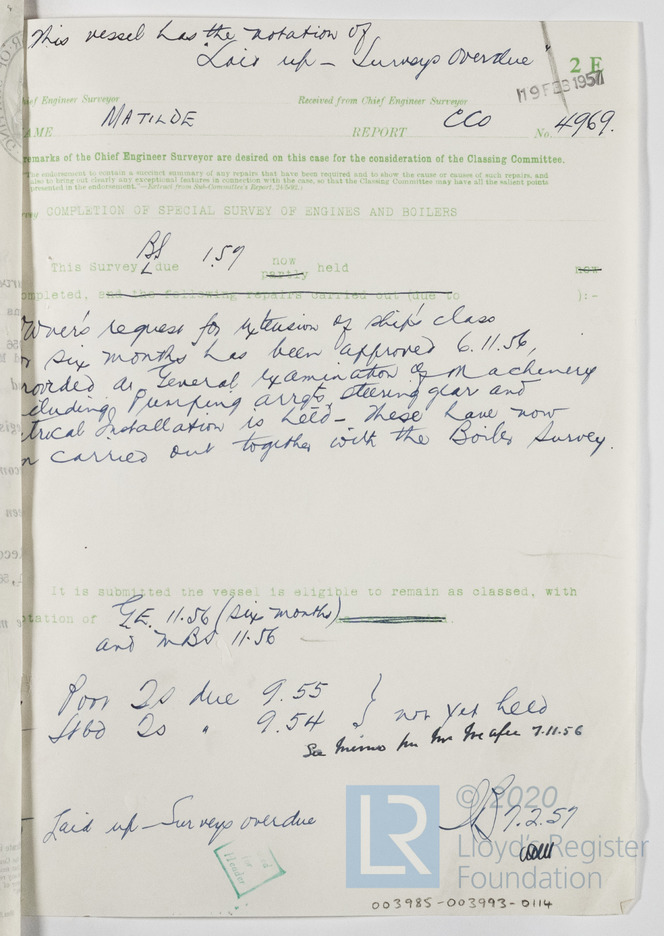 This vessel has the notation of
"Laid up - Surveys overdue"
2 E
19 FEB 1957
hief Engineer Surveyor
Received from Chief Engineer Surveyor
AME MATILDE REPORT CCO No. 4969.
emarks of the Chief Engineer Surveyor are desired on this case for the consideration of the Classing Committee.
The endorsement to contain a succinct summary of any repairs that have been required and to show the cause or causes of such repairs, and
also to bring out clearly any exceptional features in connection with the case, so that the Classing Committee may have all the salient points
presented in the endorsement."—Extract from Sub-Committee's Report, 24/5/92.
vey COMPLETION OF SPECIAL SURVEY OF ENGINES AND BOILERS
BS 1.57
now
This Survey due partly held now
ompleted, and the following repairs carried out (due to ):-
wner's request for extension of ship's class
six months has been approved 6.11.56,
rovided a General examination of Machinery
cluding Pumping arrgts, steering gear and
trical Installation is held - these have now
n carried out together with the Boiler Survey.
It is submitted the vessel is eligible to remain as classed, with
tation of GE. 11.56 (six months)
and MBS 11.56
Port Ds due 9.55
Stbd Ds " 9.54 } not yet held
See Memo 7.11.56
Laid up - Surveys overdue
7.2.57
Header
LR
© 2020
Lloyd's Register
Foundation
003985-003993-0114